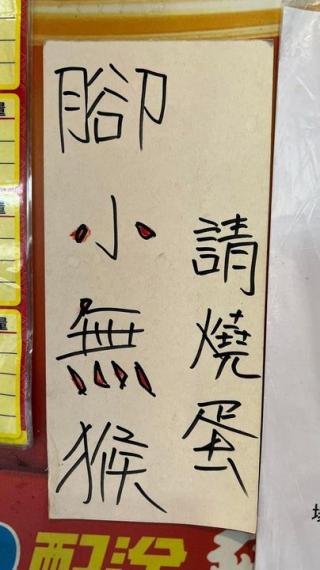 請燒蛋
腳小無猴